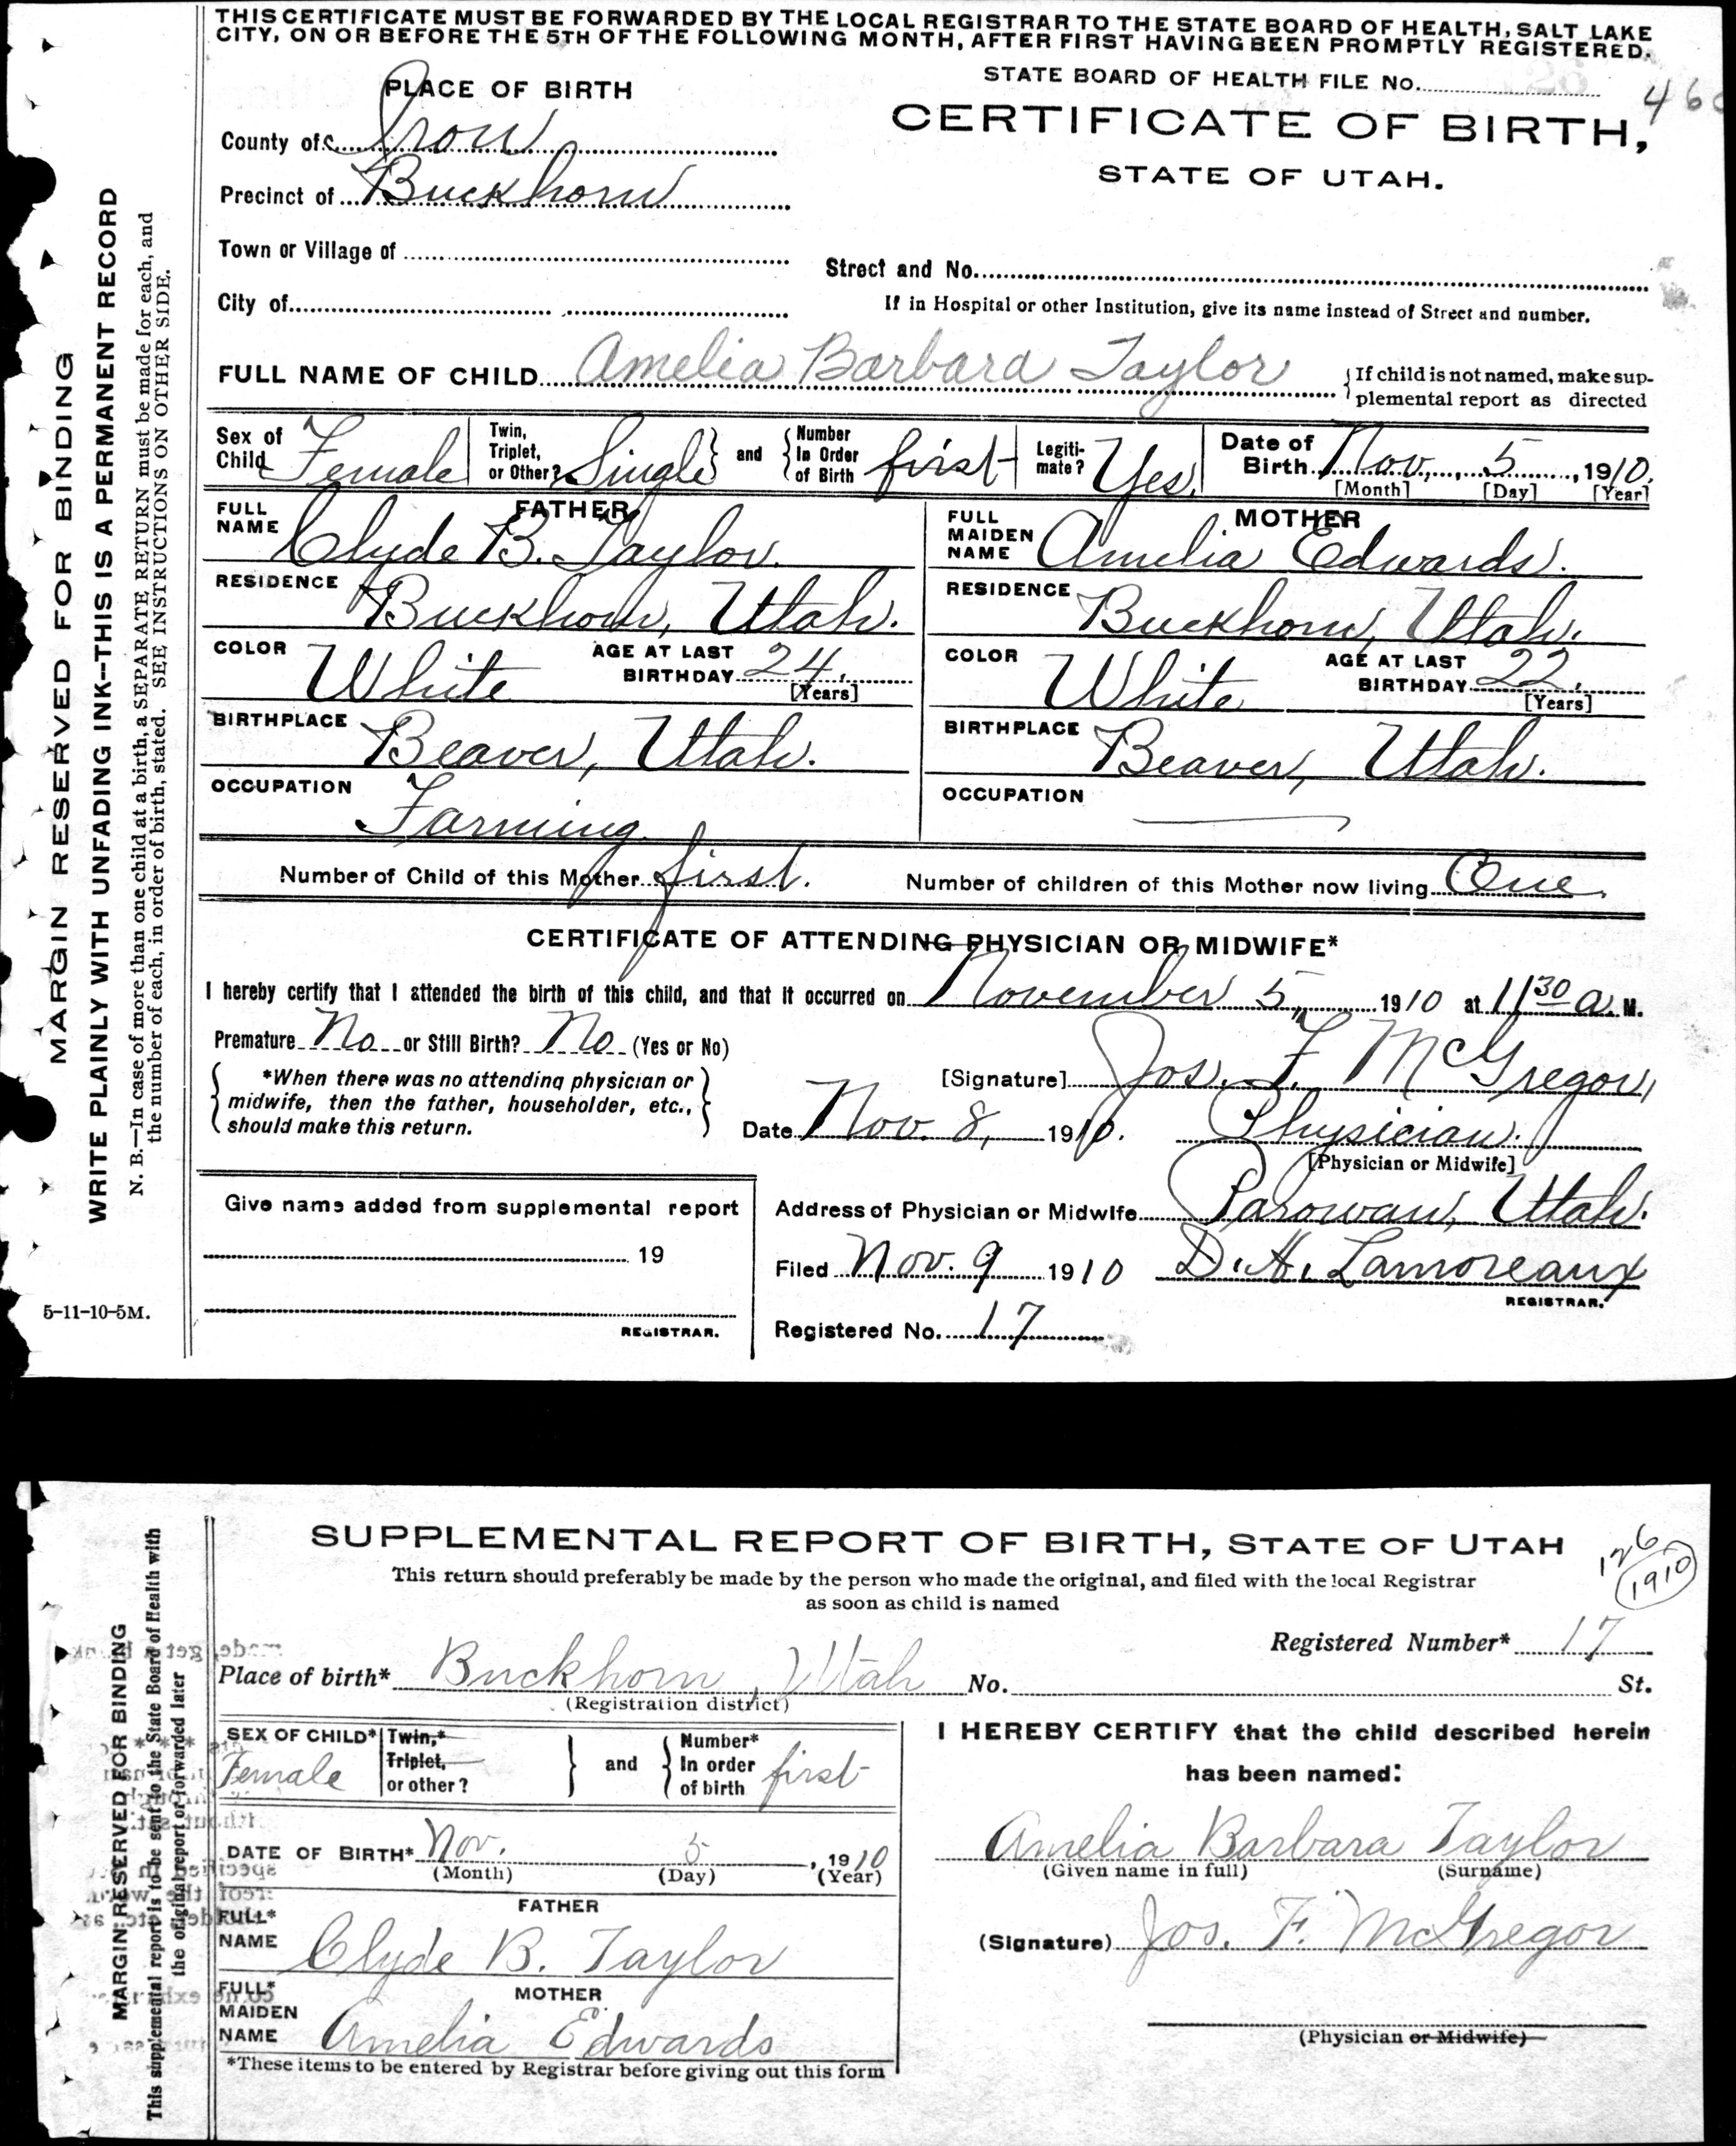 THIS CERTIFICATE MUST BE FORWARDED BY THE LOCAL REGISTRAR TO THE STATE BOARD OF HEALTH, SALT LAKE
CITY, ON OR BEFORE THE 5TH OF THE FOLLOWING MONTH, AFTER FIRST HAVING BEEN PROMPTLY REGISTERED.
STATE BOARD OF HEALTH FILE No.
PLACE OF BIRTH
CERTIFICATE OF BIRTH,
County of Iron
STATE OF UTAH.
Precinct of Buckhorn
Town or Village of
Street and No.
City of
If in Hospital or other Institution, give its name instead of Street and number.
FULL NAME OF CHILD Amelia Barbara Taylor { If child is not named, make sup-
plemental report as directed
Sex of Child Female Twin, Triplet, or Other? Single } and { Number In Order of Birth first Legiti-mate? Yes. Date of Birth Nov, 5, 1910.
[Month] [Day] [Year]
FATHER
FULL NAME Clyde B. Taylor.
RESIDENCE Buckhorn, Utah.
COLOR White AGE AT LAST BIRTHDAY 24, [Years]
BIRTHPLACE Beaver, Utah.
OCCUPATION Farming
MOTHER
FULL MAIDEN NAME Amelia Edwards.
RESIDENCE Buckhorn, Utah.
COLOR White AGE AT LAST BIRTHDAY 22, [Years]
BIRTHPLACE Beaver, Utah.
OCCUPATION
Number of Child of this Mother first. Number of children of this Mother now living One.
CERTIFICATE OF ATTENDING PHYSICIAN OR MIDWIFE*
I hereby certify that I attended the birth of this child, and that it occurred on November 5, 1910 at 11 30 a. M.
Premature No or Still Birth? No (Yes or No)
*When there was no attending physician or
midwife, then the father, householder, etc.,
should make this return.
[Signature] Jos. F. McGregor,
Date Nov. 8, 1910. Physician.
[Physician or Midwife]
Give name added from supplemental report
19
REGISTRAR.
Address of Physician or Midwife Parowan, Utah.
Filed Nov. 9 1910 D. H. Lamoreaux
REGISTRAR.
Registered No. 17
5-11-10-5M.
MARGIN RESERVED FOR BINDING
WRITE PLAINLY WITH UNFADING INK--THIS IS A PERMANENT RECORD
N. B.—In case of more than one child at a birth, a SEPARATE RETURN must be made for each, and
the number of each, in order of birth, stated. SEE INSTRUCTIONS ON OTHER SIDE.
SUPPLEMENTAL REPORT OF BIRTH, STATE OF UTAH
126
1910
This return should preferably be made by the person who made the original, and filed with the local Registrar
as soon as child is named
Registered Number* 17
Place of birth* Buckhorn, Utah No. St.
(Registration district)
SEX OF CHILD* Female Twin,* Triplet, or other? } and { Number* In order of birth first
DATE OF BIRTH* Nov. 5, 1910
(Month) (Day) (Year)
FATHER
FULL* NAME Clyde B. Taylor
MOTHER
FULL* MAIDEN NAME Amelia Edwards
*These items to be entered by Registrar before giving out this form
I HEREBY CERTIFY that the child described herein
has been named:
Amelia Barbara Taylor
(Given name in full) (Surname)
(Signature) Jos. F. McGregor
(Physician or Midwife)
MARGIN RESERVED FOR BINDING
This supplemental report is to be sent to the State Board of Health with
the original report or forwarded later